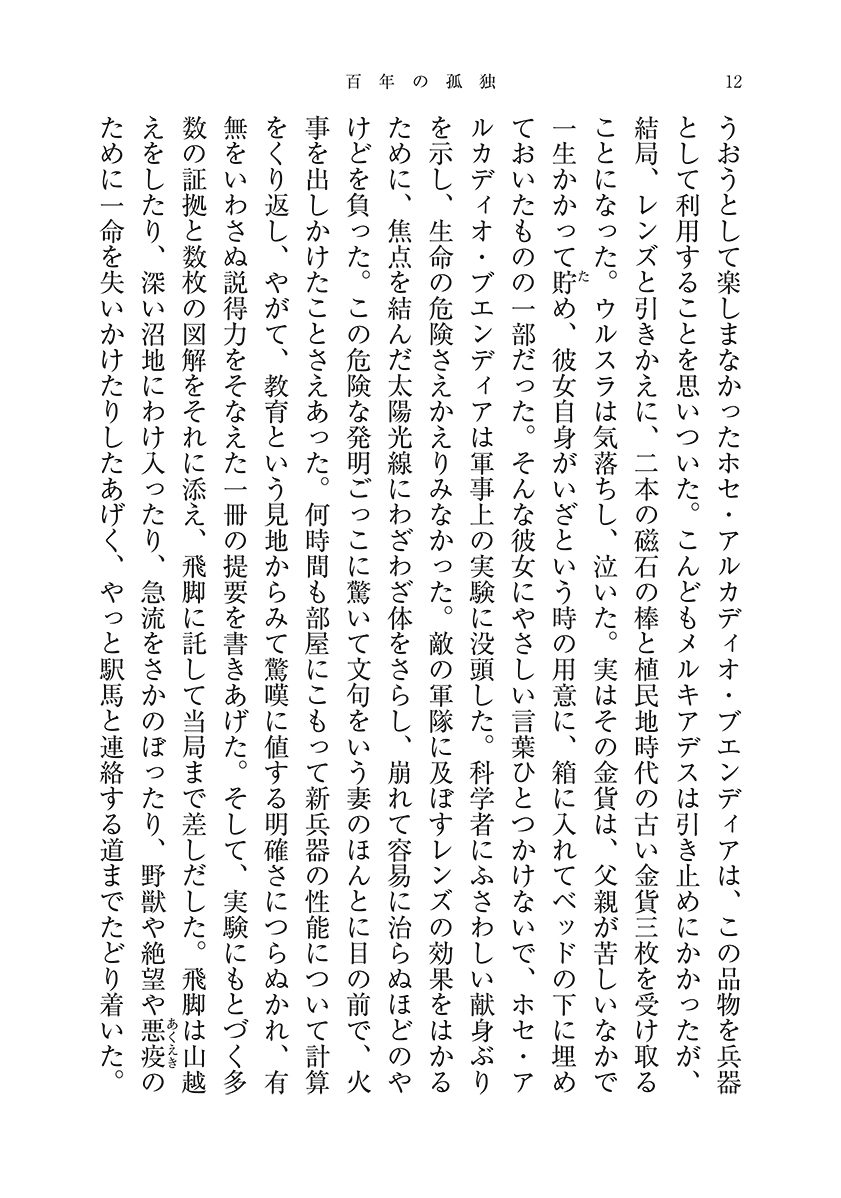 百年の孤独
12
うおうとして楽しまなかったホセ・アルカディオ・ブエンディアは、この品物を兵器
として利用することを思いついた。こんどもメルキアデスは引き止めにかかったが、
結局、レンズと引きかえに、二本の磁石の棒と植民地時代の古い金貨三枚を受け取る
ことになった。ウルスラは気落ちし、泣いた。実はその金貨は、父親が苦しいなかで
一生かかって貯め、彼女自身がいざという時の用意に、箱に入れてベッドの下に埋め
ておいたものの一部だった。そんな彼女にやさしい言葉ひとつかけないで、ホセ・ア
ルカディオ・ブエンディアは軍事上の実験に没頭した。科学者にふさわしい献身ぶり
を示し、生命の危険さえかえりみなかった。敵の軍隊に及ぼすレンズの効果をはかる
ために、焦点を結んだ太陽光線にわざわざ体をさらし、崩れて容易に治らぬほどのや
けどを負った。この危険な発明ごっこに驚いて文句をいう妻のほんとに目の前で、火
事を出しかけたことさえあった。何時間も部屋にこもって新兵器の性能について計算
をくり返し、やがて、教育という見地からみて驚嘆に値する明確さにつらぬかれ、有
無をいわさぬ説得力をそなえた一冊の提要を書きあげた。そして、実験にもとづく多
数の証拠と数枚の図解をそれに添え、飛脚に託して当局まで差しだした。飛脚は山越
えをしたり、深い沼地にわけ入ったり、急流をさかのぼったり、野獣や絶望や悪疫の
ために一命を失いかけたりしたあげく、やっと駅馬と連絡する道までたどり着いた。
た
あくえき